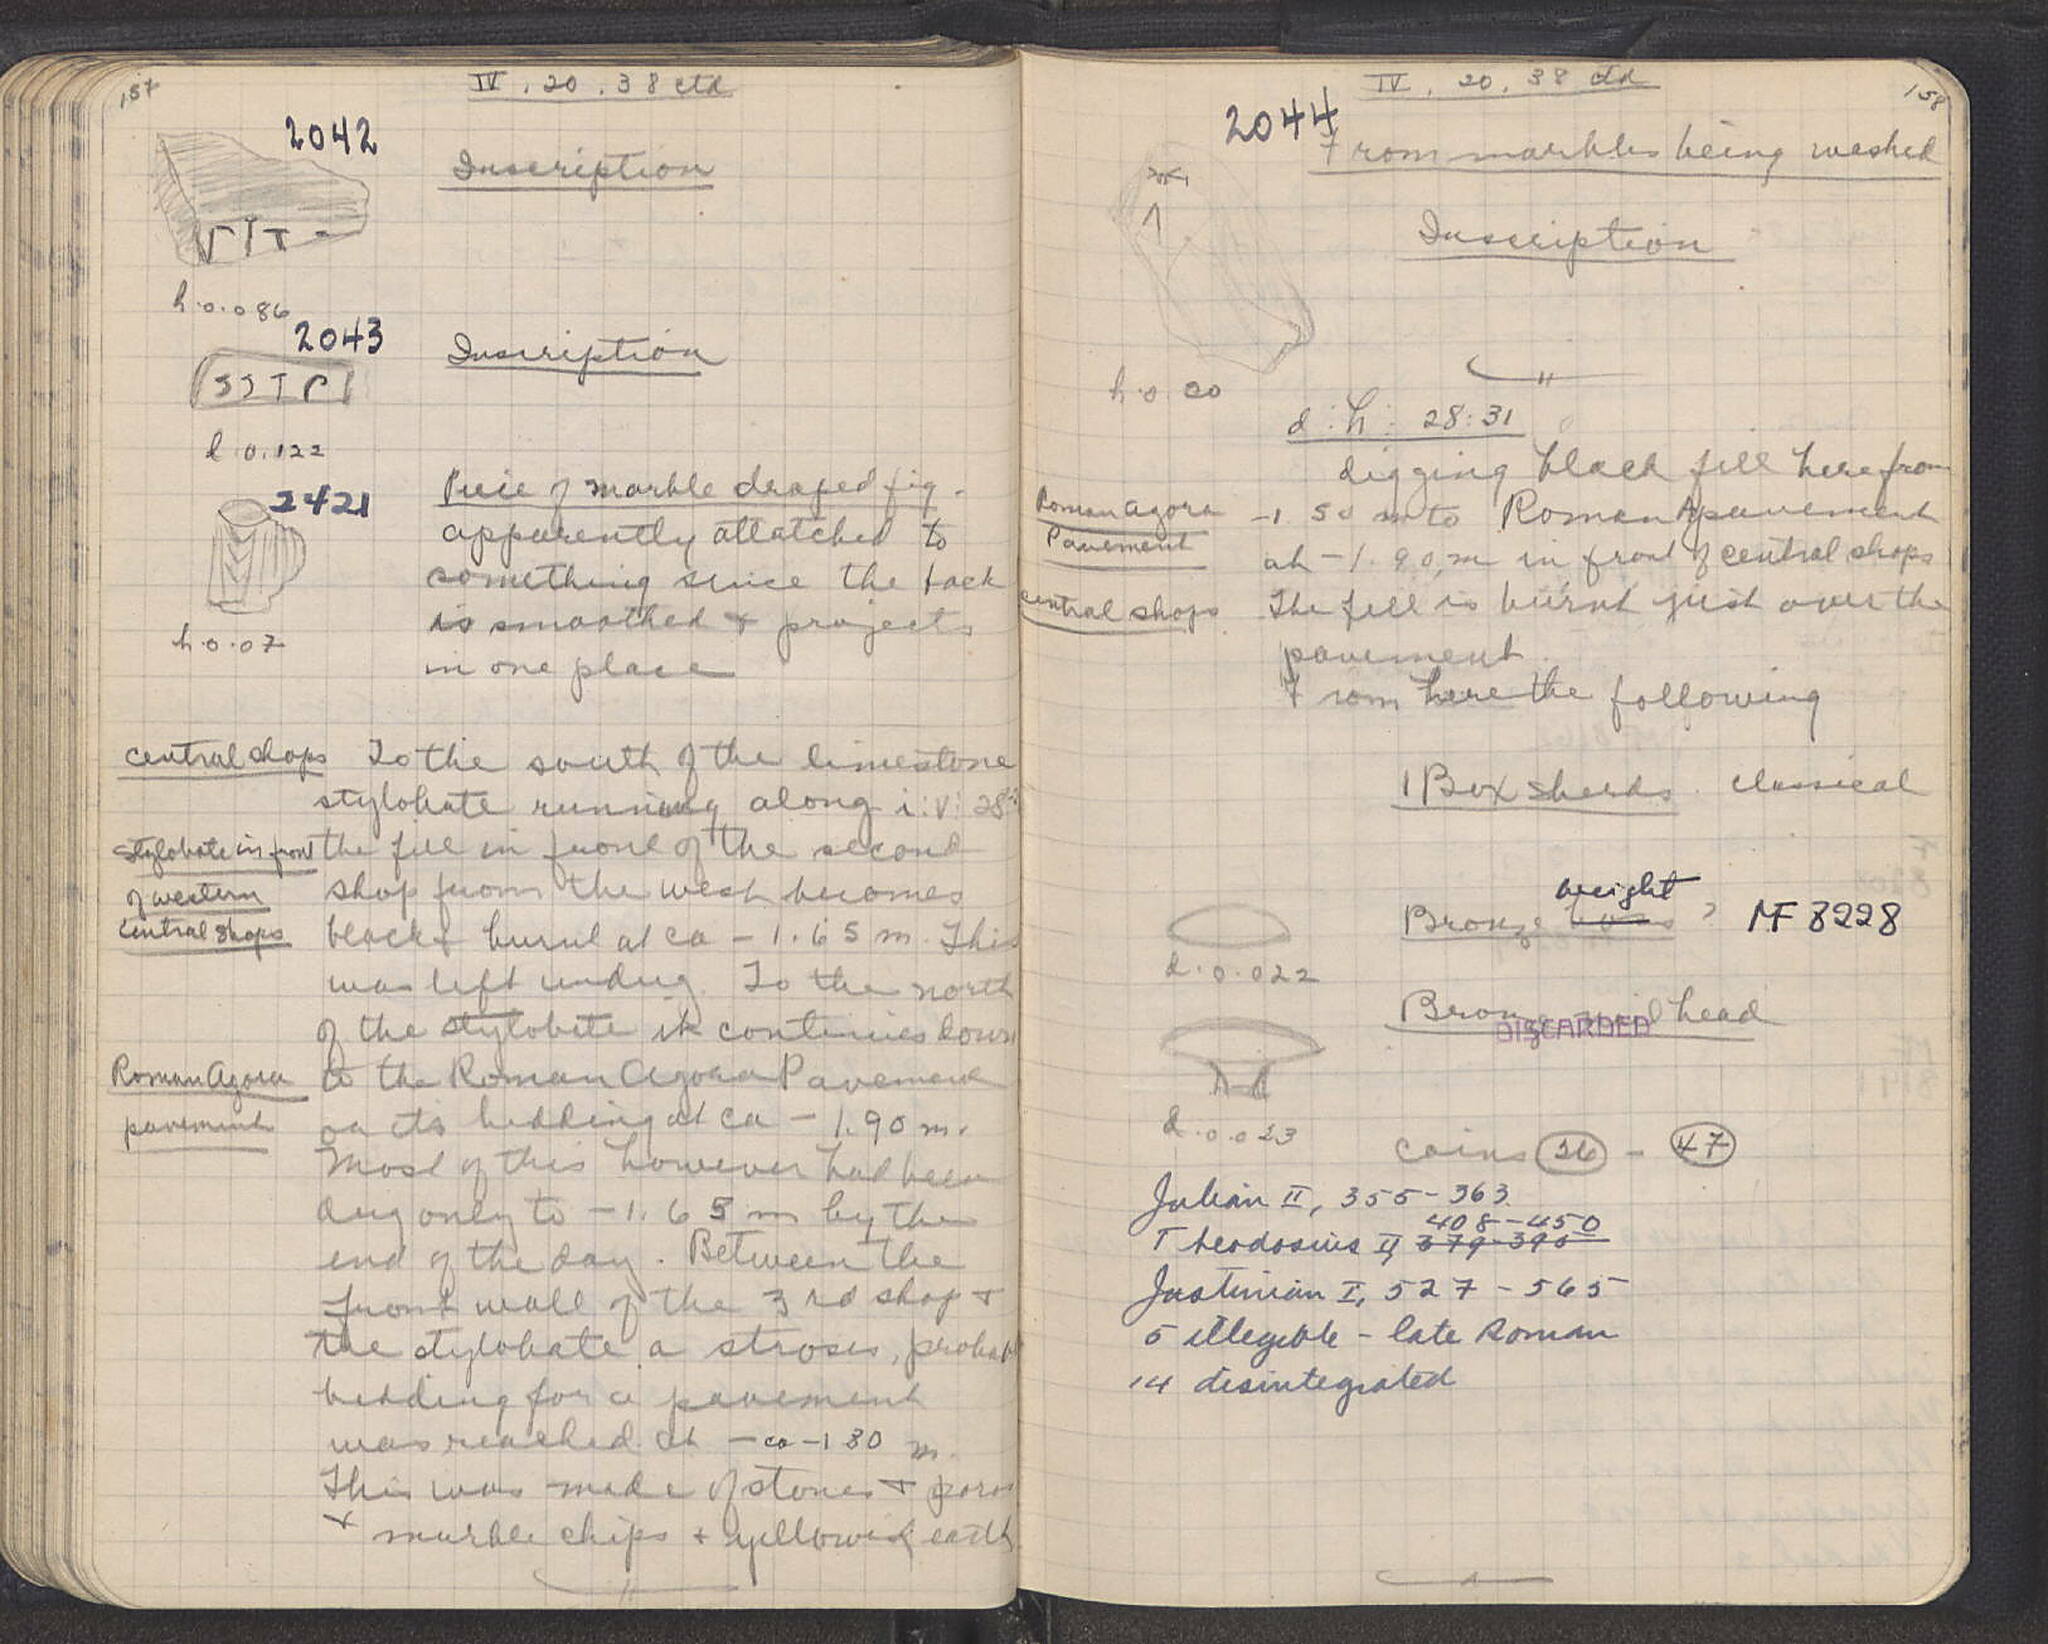 157
IV . 20 . 38 ctd
2042
Inscription
VIT
h.0.086
2043
Inscription
l.0.122
2421
Piece of marble draped fig.
apparently attatched to
something since the back
is smoothed + projects
in one place
h.0.07
Central Shops
To the south of the limestone
stylobate running along i:V: 28
Stylobate in front
of western
Central Shops
the fill in front of the second
shop from the west becomes
black & burnt at ca - 1.65 m. This
was left undug. To the north
of the stylobate it continues down
Roman Agora
pavement
to the Roman Agora Pavement
or its bedding at ca - 1.90 m.
Most of this however had been
dug only to - 1.65 m by the
end of the day. Between the
front wall of the 3rd shop +
the stylobate a stroses, probab
bedding for a pavement
was reached at - ca -1 80 m.
This was made of stones + poros
+ marble chips + yellowish earth
158
IV . 20 . 38 ctd
2044
From marbles being washed
Inscription
h.0.20
d : h : 28:31
digging black fill here from
Roman Agora
Pavement
-1.50 m to Roman A pavement
at -1.90 m in front of central shops
central shops
The fill is burnt just over the
pavement.
From here the following
1 Box sherds. classical
weight
Bronze boss ? MF 8228
d.0.022
Bronze nail head
DISCARDED
d.0.023
coins 26 - 47
Julian II, 355-363.
408-450
Theodosius II, 379-395
Justinian I, 527-565
5 illegible - late Roman
14 disintegrated